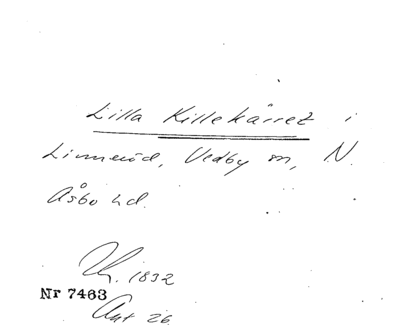 Lilla Killekärret i
Linneröd, Vedby sn, N.
Åsbo hd.
1832
Nr 7463
Akt 26